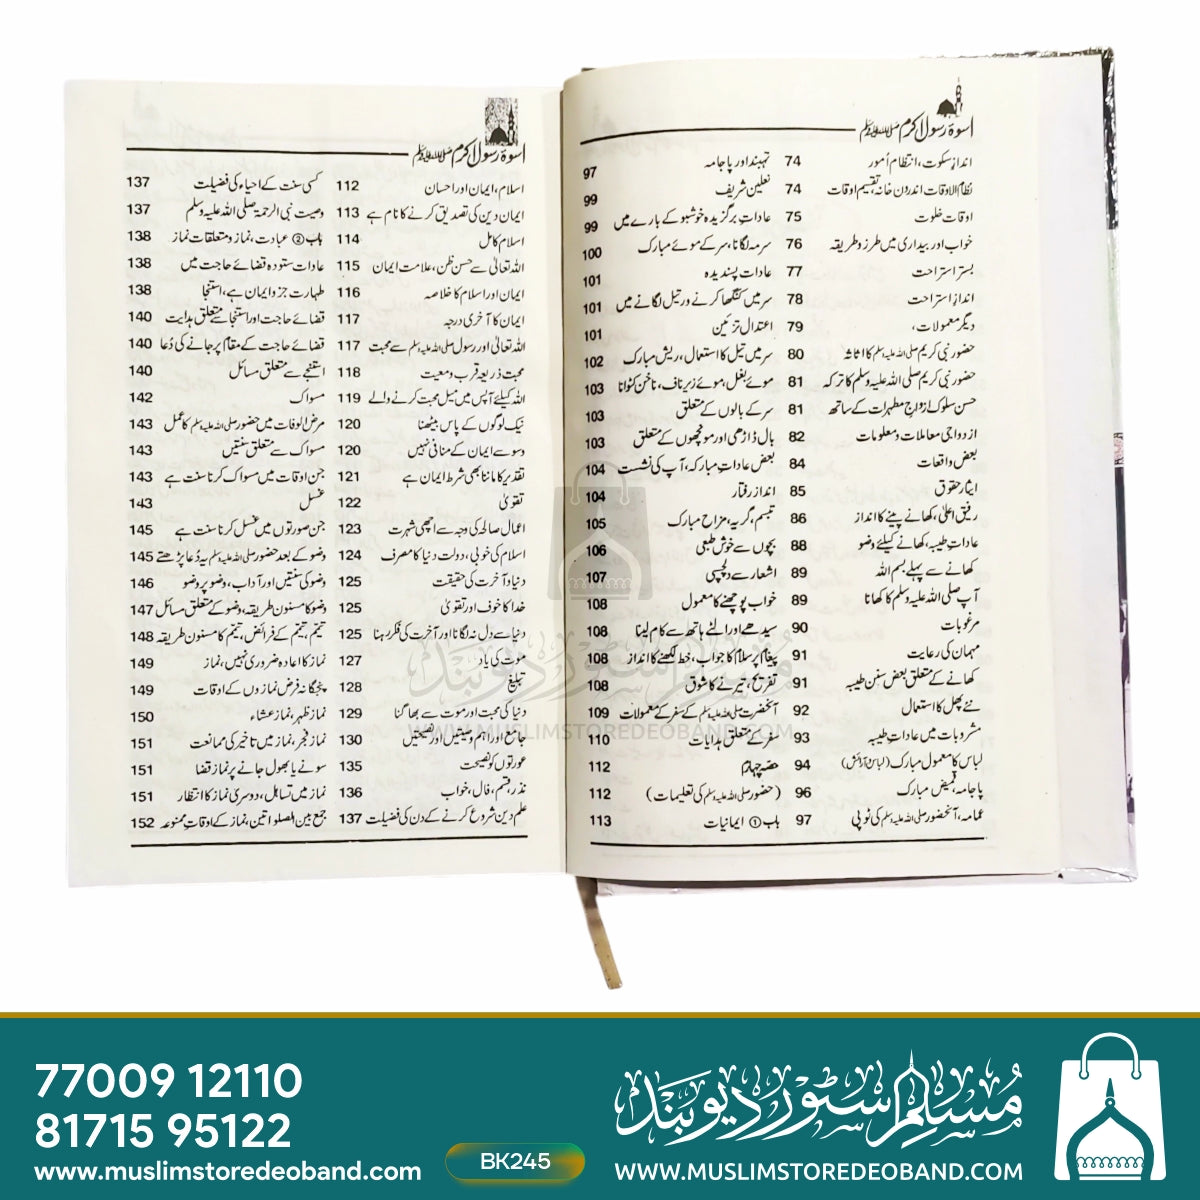 اسوۂ رسول اکرم ﷺ
اندازِ سکوت، انتظامِ اُمور 74
نظام الاوقات اندرونِ خانہ، تقسیم اوقات 74
اوقات خلوت 75
خواب اور بیداری میں طرز و طریقہ 76
بستر استراحت 77
اندازِ استراحت 78
دیگر معمولات، 79
حضور نبی کریم صلی اللہ علیہ وسلم کا اثاثہ 80
حضور نبی کریم صلی اللہ علیہ وسلم کا ترکہ 81
حسن سلوک ازواجِ مطہرات کے ساتھ 81
ازدواجی معاملات و معلومات 82
بعض واقعات 84
ایثار حقوق 85
رفیق اعلیٰ، کھانے پینے کا انداز 86
عاداتِ طیبہ، کھانے کیلئے وضو 88
کھانے سے پہلے بسم اللہ 89
آپ صلی اللہ علیہ وسلم کا کھانا 89
مرغوبات 90
مہمان کی رعایت 91
کھانے کے متعلق بعض سنن طیبہ 91
نئے پھل کا استعمال 92
مشروبات میں عاداتِ طیبہ 93
لباس کا معمول مبارک (لباس و آرائش) 94
پاجامہ، قمیض مبارک 96
عمامہ، آنحضور صلی اللہ علیہ وسلم کی ٹوپی 97
تہبند اور پاجامہ 97
نعلین شریف 99
عاداتِ برگزیدہ خوشبو کے بارے میں 99
سرمہ لگانا، سر کے موئے مبارک 100
عادات پسندیدہ 101
سر میں کنگھا کرنے ور تیل لگانے میں 101
اعتدال تزئین 101
سر میں تیل کا استعمال، ریش مبارک 102
موئے بغل، موئے زیر ناف، ناخن کٹوانا 103
سر کے بالوں کے متعلق 103
بال ڈاڑھی اور مونچھوں کے متعلق 103
بعض عاداتِ مبارکہ، آپ کی نشست 104
انداز رفتار 104
تبسم، گریہ، مزاح مبارک 105
بچوں سے خوش طبعی 106
اشعار سے دلچسپی 107
خواب پوچھنے کا معمول 108
سیدھے اور الٹے ہاتھ سے کام لینا 108
پیغام پر سلام کا جواب، خط لکھنے کا انداز 108
تفریح، تیرنے کا شوق 108
آنحضرت صلی اللہ علیہ وسلم کے سفر کے معمولات 109
سفر کے متعلق ہدایات 110
حصہ چہارم 112
(حضور صلی اللہ علیہ وسلم کی تعلیمات) 112
باب ① ایمانیات 113
اسوۂ رسول اکرم ﷺ
اسلام، ایمان اور احسان 112
ایمان دین کی تصدیق کرنے کا نام ہے 113
اسلام کامل 114
اللہ تعالیٰ سے حسن ظن، علامت ایمان 115
ایمان اور اسلام کا خلاصہ 116
ایمان کا آخری درجہ 117
اللہ تعالیٰ اور رسول صلی اللہ علیہ وسلم سے محبت 117
محبت ذریعہ قرب و معیت 118
اللہ کیلئے آپس میں میل محبت کرنے والے 119
نیک لوگوں کے پاس بیٹھنا 120
وسوسے ایمان کے منافی نہیں 120
تقدیر کا ماننا بھی شرط ایمان ہے 121
تقویٰ 122
اعمال صالحہ کی وجہ سے اچھی شہرت 123
اسلام کی خوبی، دولت دنیا کا مصرف 124
دنیا و آخرت کی حقیقت 125
خدا کا خوف اور تقویٰ 125
دنیا سے دل نہ لگانا اور آخرت کی فکر رہنا 125
موت کی یاد 127
تبلیغ 128
دنیا کی محبت اور موت سے بھاگنا 129
جامع اور اہم وصیتیں اور نصیحتیں 130
عورتوں کو نصیحت 135
نذر، قسم، فال، خواب 136
علم دین شروع کرنے کے دن کی فضیلت 137
کسی سنت کے احیاء کی فضیلت 137
وصیت نبی الرحمۃ صلی اللہ علیہ وسلم 137
باب ② عبادت، نماز و متعلقات نماز 138
عادات ستودہ قضائے حاجت میں 138
طہارت جزو ایمان ہے، استنجا 138
قضائے حاجت اور استنجا سے متعلق ہدایت 140
قضائے حاجت کے مقام پر جانے کی دُعا 140
استنجے سے متعلق مسائل 140
مسواک 142
مرض الوفات میں حضور صلی اللہ علیہ وسلم کا عمل 143
مسواک سے متعلق سنتیں 143
جن اوقات میں مسواک کرنا سنت ہے 143
غسل 143
جن صورتوں میں غسل کرنا سنت ہے 145
وضو کے بعد حضور صلی اللہ علیہ وسلم یہ دُعا پڑھتے 145
وضو کی سنتیں اور آداب، وضو پر وضو 146
وضو کا مسنون طریقہ، وضو کے متعلق مسائل 147
تیمم، تیمم کے فرائض، تیمم کا مسنون طریقہ 148
نماز کا اعادہ ضروری نہیں، نماز 149
پنجگانہ فرض نمازوں کے اوقات 149
نماز ظہر، نماز عشاء 150
نماز فجر، نماز میں تاخیر کی ممانعت 151
سونے یا بھول جانے پر نماز قضا 151
نماز میں تساہل، دوسری نماز کا انتظار 151
جمع بین الصلواتین، نماز کے اوقات ممنوعہ 152
مسلم سٹور دیوبند
WWW.MUSLIMSTOREDEOBAND.COM
77009 12110
81715 95122
www.muslimstoredeoband.com
BK245
مسلم سٹور دیوبند
WWW.MUSLIMSTOREDEOBAND.COM